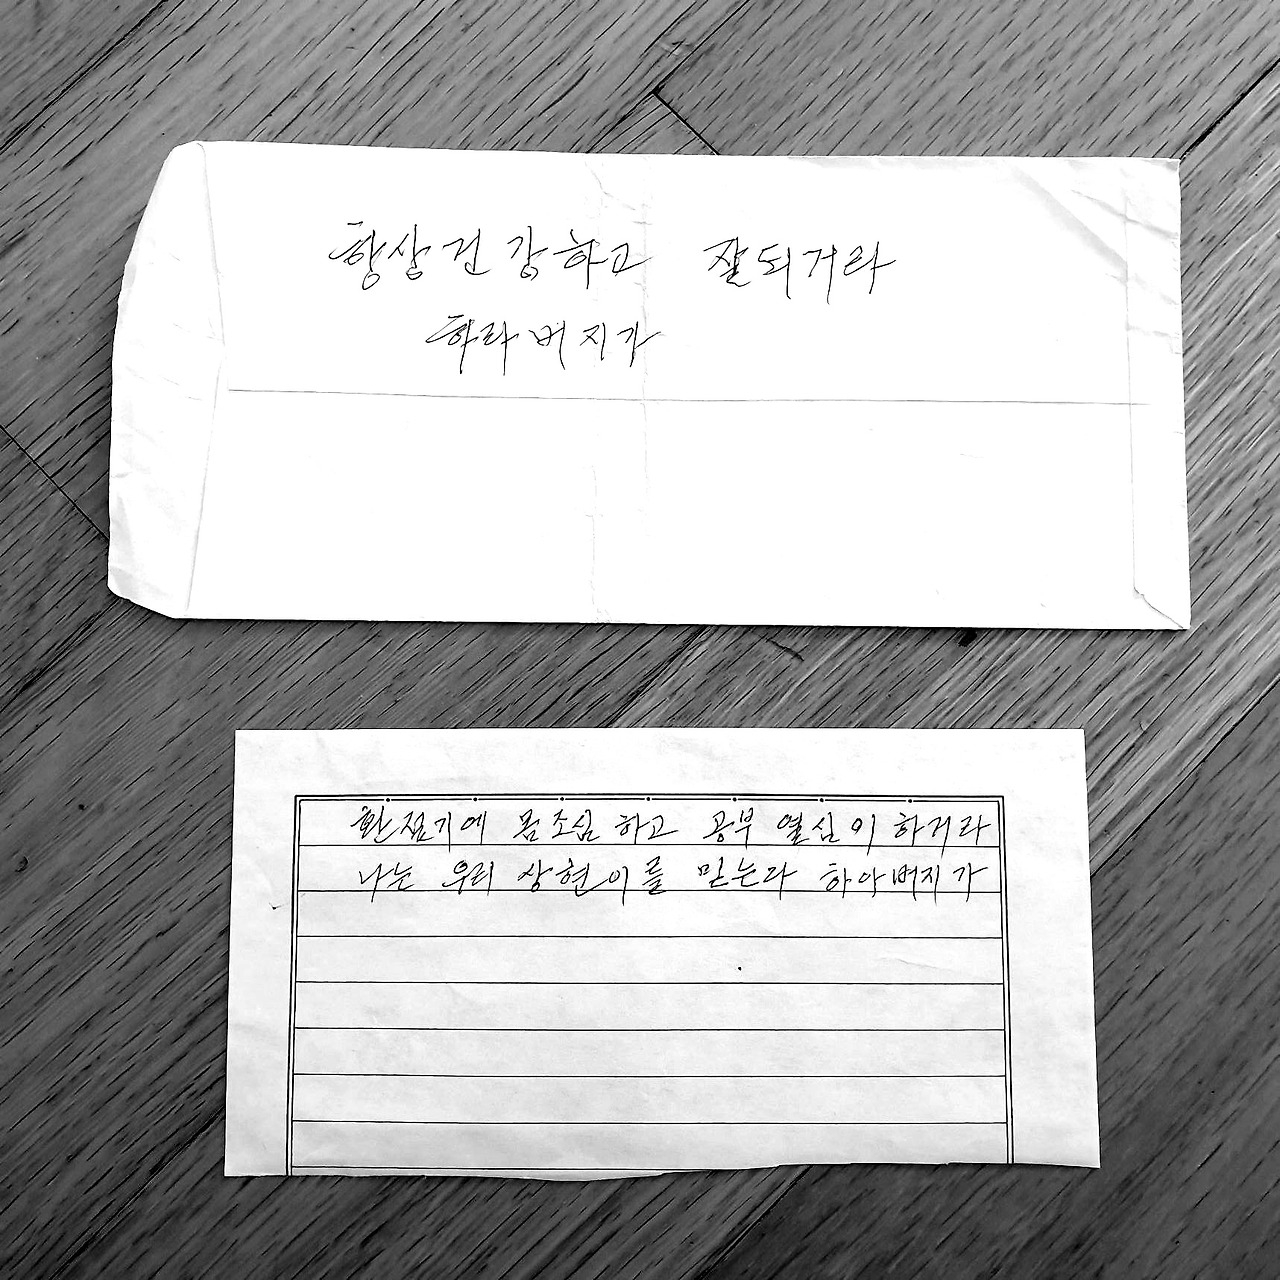 항상 건강하고 잘되거라
하라버지가
환절기에 몸조심 하고 공부 열심이 하거라
나는 우리 상현이를 믿는다 하아버지가